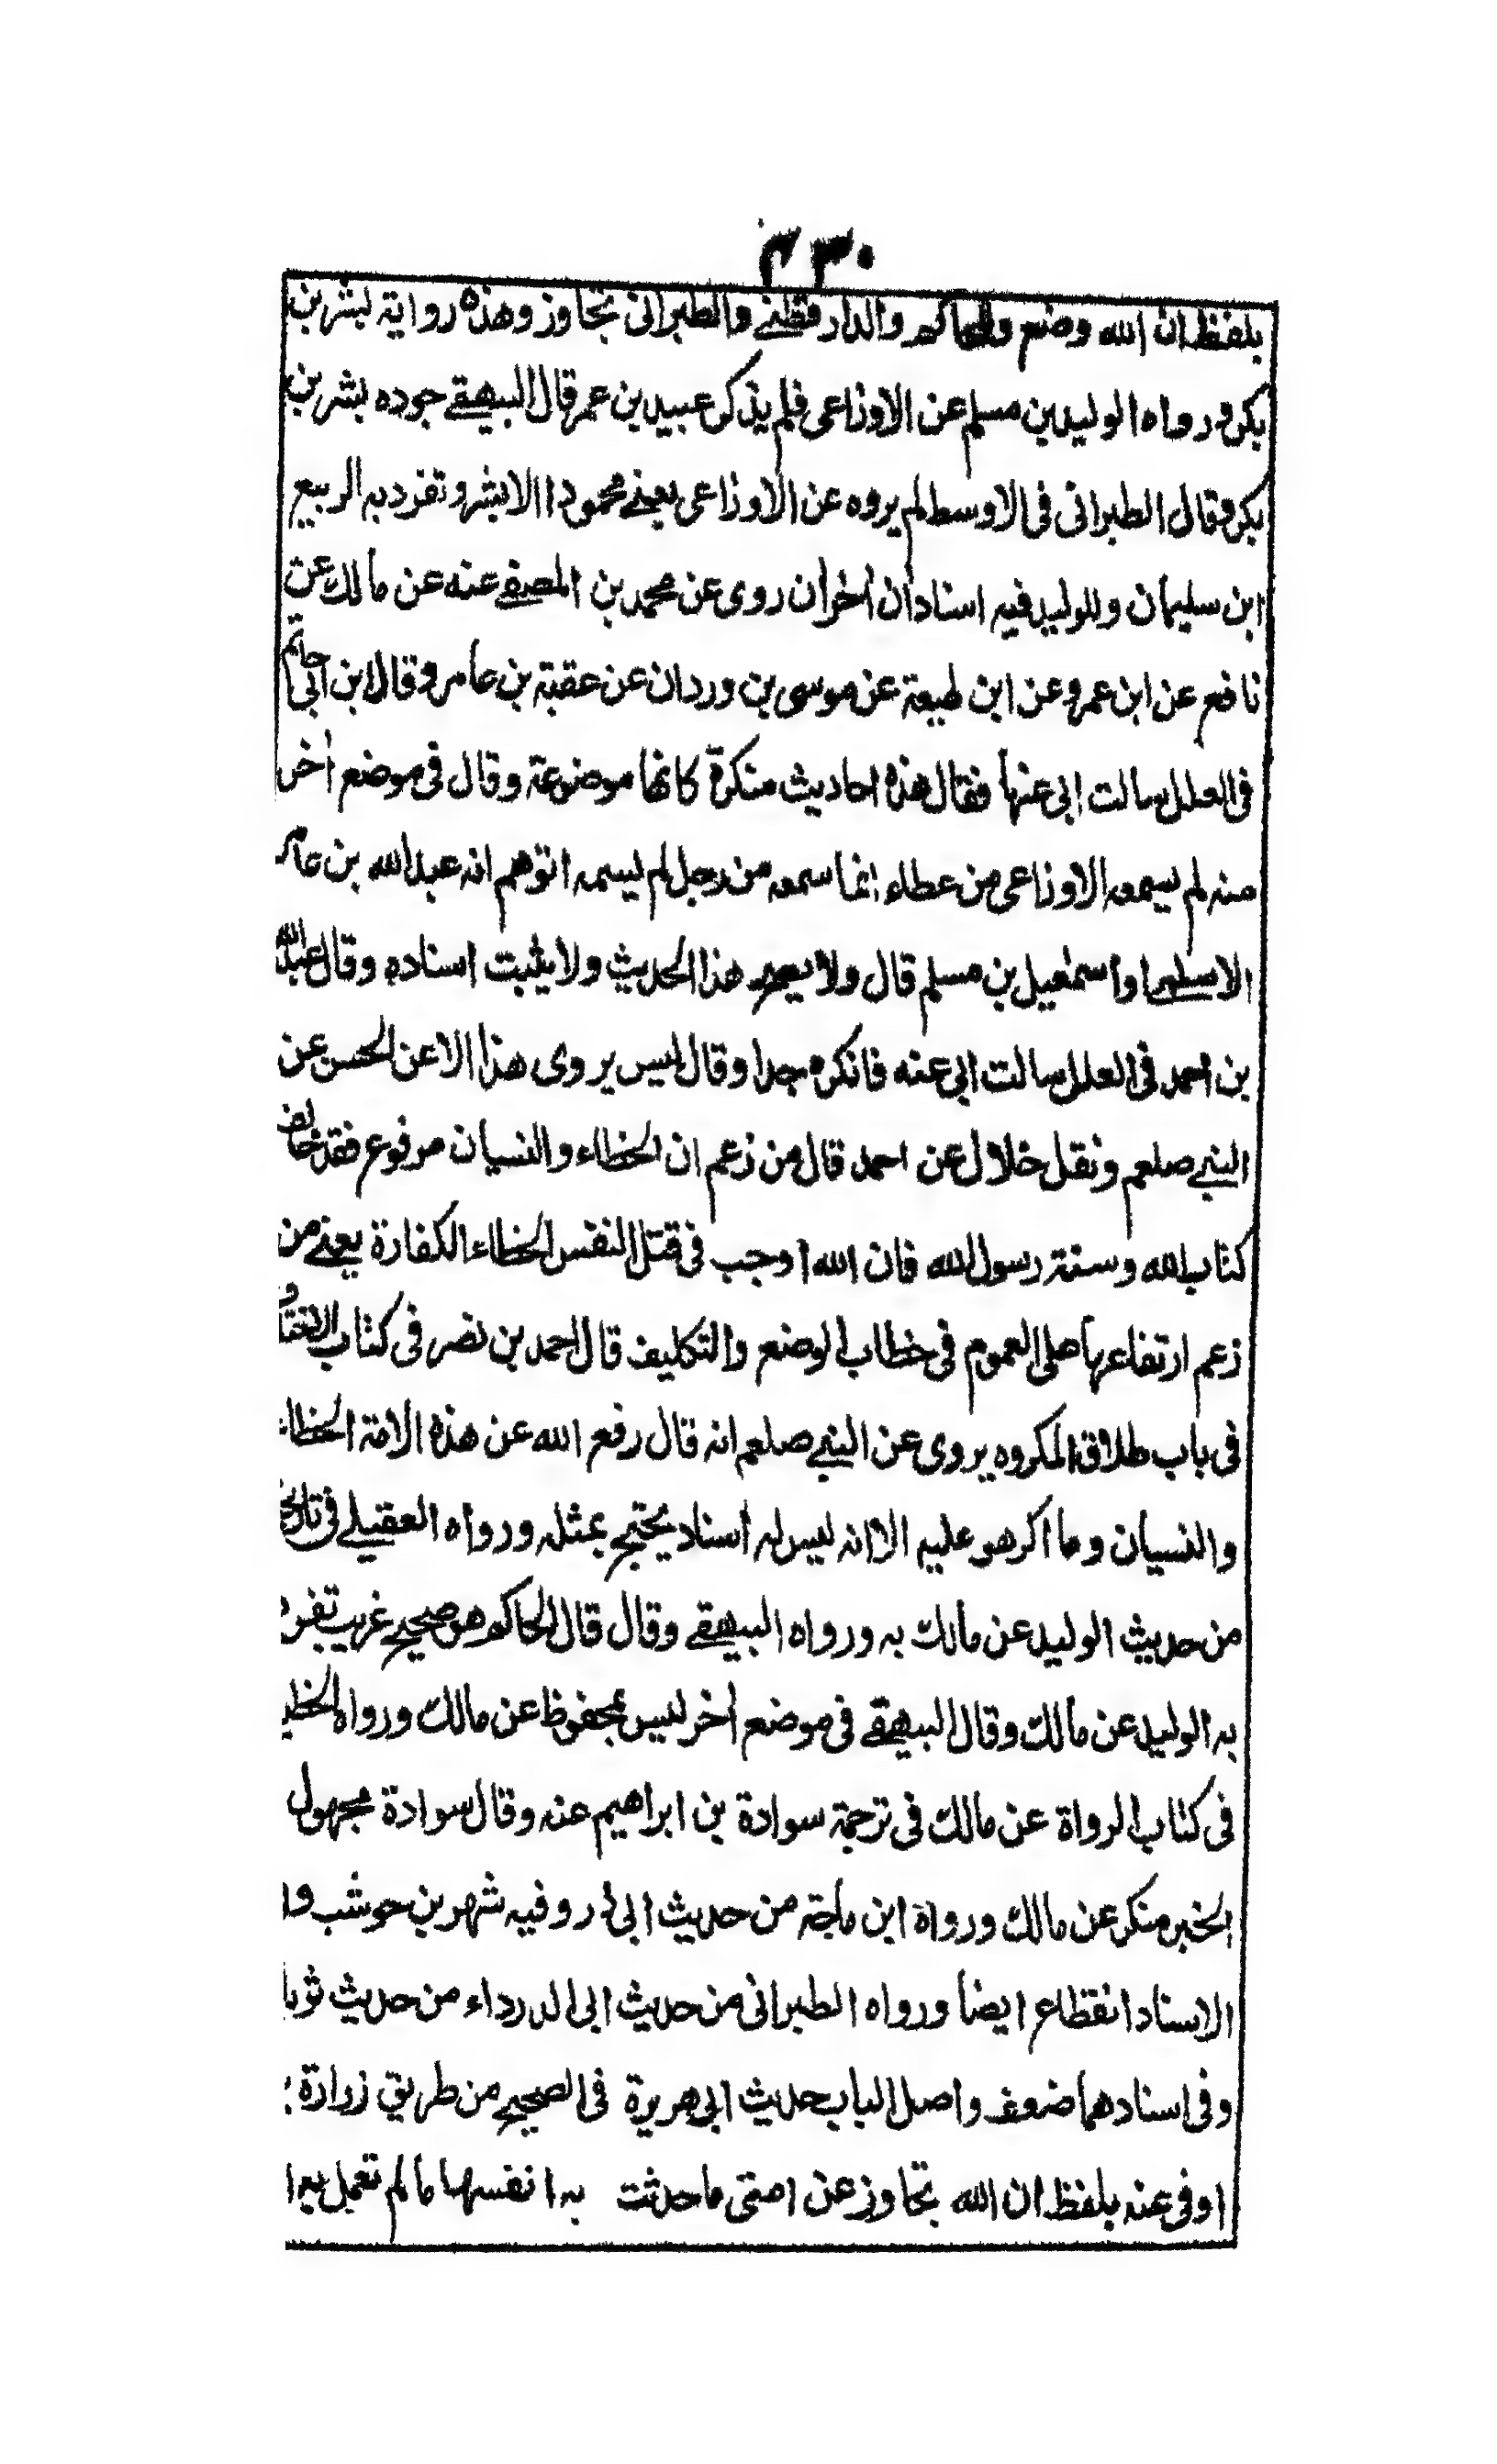 ٢٣٠
بلفظ ان الله وضع والحاكم والدارقطنے والطبرانی تجاوز وهذه رواية بشر بن
بكر ورواه الوليد بن مسلم عن الاوزاعی فلم يذكر عبيد بن عمر قال البيهقے جوده بشر بن
بكر وقال الطبرانی فی الاوسط لم يروه عن الاوزاعی يعنے مجمودا الا بشر و تفرد به الربيع
ابن سليمان وللوليد فيه اسنادان اخران روی عن محمد بن المصفے عنه عن مالك عن
نافع عن ابن عمر وعن ابن لهيعة عن موسی بن وردان عن عقبة بن عامر وقال ابن ابی حاتم
فی العلل سالت ابی عنها فقال هذه احاديث منكرة كانها موضوعة وقال فی موضع اخر
منه لم يسمعه الاوزاعی من عطاء انما سمعه من رجل لم يسمه اتوهم انه عبد الله بن عامر
الاسلمے او اسمعيل بن مسلم قال ولا يصح هذا الحديث ولا يثبت اسناده وقال عبد الله
بن احمد فی العلل سالت ابی عنه فانكره جدا وقال ليس يروی هذا الا عن الحسن عن
النبے صلعم ونقل خلال عن احمد قال من زعم ان الخطاء والنسيان مرفوع فقد خالف
كتاب الله وسنة رسول الله فان الله اوجب فی قتل النفس الخطاء الكفارة يعنے من
زعم ارتفاعها علی العموم فی خطاب الوضع والتكليف قال احمد بن نصر فی كتاب
فی باب طلاق المكروه يروی عن النبے صلعم انه قال رفع الله عن هذه الامة الخطاء
والنسيان وما اكرهو عليه الا انه ليس له اسناد يحتج بمثله ورواه العقيلے فی
من حديث الوليد عن مالك به ورواه البيهقے وقال قال الحاكم هو صحيح غريب تفرد
به الوليد عن مالك وقال البيهقے فی موضع اخر ليس بمحفوظ عن مالك ورواه
فی كتاب الرواة عن مالك فی ترجمة سوادة بن ابراهيم عنه وقال سوادة مجهول
الخبر منكر عن مالك ورواه ابن ماجة من حديث ابی ذر وفيه شهر بن حوشب
الاسناد انقطاع ايضا ورواه الطبرانی من حديث ابی الدرداء من حديث
وفی اسنادهما ضعف واصل الباب حديث ابی هريرة فی الصحيح من طريق زرارة
اوفی عنه بلفظ ان الله تجاوز عن امتی ما حدثت به انفسها ما لم تعمل به